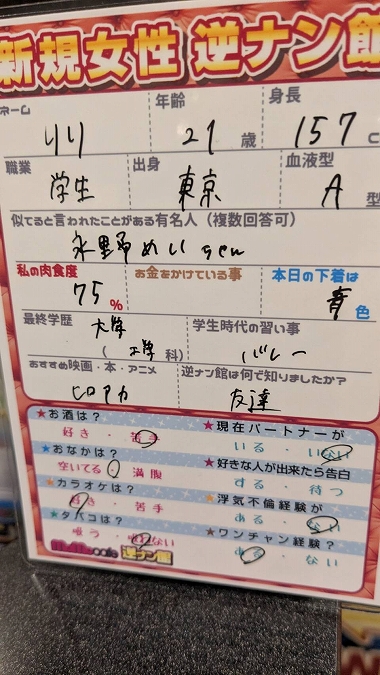 新規女性 逆ナン館
ネーム 年齢 身長
りり 21歳 157 c
職業 出身 血液型
学生 東京 A型
似てると言われたことがある有名人(複数回答可)
永野めい gen
私の肉食度 お金をかけている事 本日の下着は
75% 青色
最終学歴 学生時代の習い事
大学
(工学科) バレー
おすすめ映画・本・アニメ 逆ナン館は何で知りましたか?
ヒロアカ 友達
★お酒は? ★現在パートナーが
好き・苦手 いる・いない
★おなかは? ★好きな人が出来たら告白
空いてる・満腹 する・待つ
★カラオケは? ★浮気不倫経験が
好き・苦手 ある・ない
★タバコは? ★ワンチャン経験?
吸う・吸わない ある・ない
cafe 逆ナン館